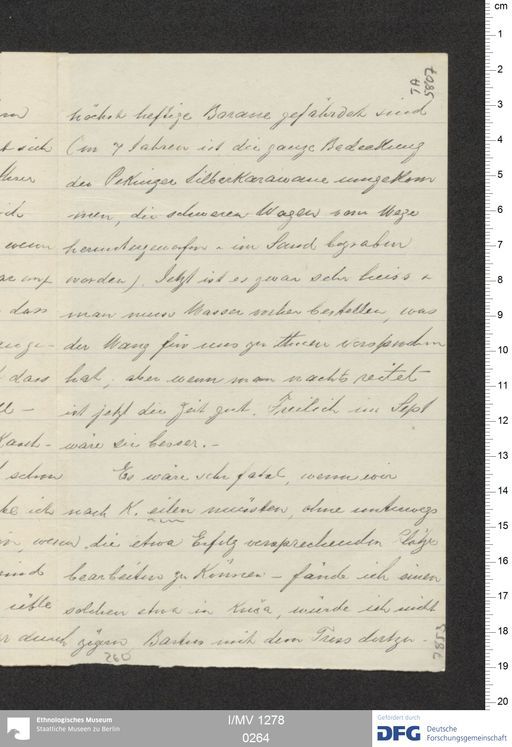 höchst heftige Borane gefährdet sind
(vor 7 Jahren ist die ganze Bedeckung
der Pekinger Silberkarawane umgekom
men, die schweren Wagen vom Wege
heruntergeworfen & im Sand begraben
worden). Jetzt ist es zwar sehr heiss &
man muss Wasser vorher bestellen, was
der Wang für uns zu thuen versprochen
hat, aber wenn man nachts reitet
ist jetzt die Zeit gut. Freilich im Sept
wäre sie besser. -
Es wäre sehr fatal, wenn wir
nach K. eilen müssten, ohne unterwegs
die etwa Erfolg versprechenden Plätze
bearbeiten zu können - fände ich einen
solchen etwa in Kuča, würde ich nicht
zögern Bartus mit dem Tross dortzu -
260
cm
1
2
3
4
5
6
7
8
9
10
11
12
13
14
15
16
17
18
19
20
Ethnologisches Museum
Staatliche Museen zu Berlin
I/MV 1278
0264
Gefördert durch
DFG Deutsche
Forschungsgemeinschaft